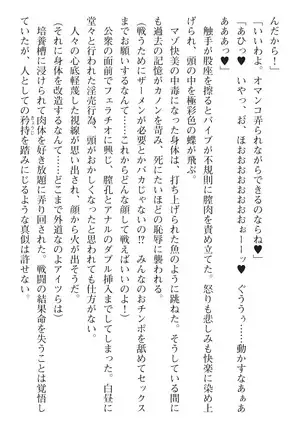 んだから！」
「いいわよ。オマンコ弄られながらできるのならね♥」
「あひっ♥　いやっ、お、ほおおおおおおおぉーーーッ♥　ぐううぅ……動かすなぁぁ
あああっ♥」
触手が股座を擦るとバイブが不規則に膣肉を責め立てた。怒りも悲しみも快楽に染め上
げられ、頭の中を極彩色の蝶が飛ぶ。
マゾ快美の中毒になった身体は、打ち上げられた魚のように跳ねた。そうしている間に
も過去の記憶がカノンを苛み、死にたいほどの恥辱に襲われる。
（戦うためにザーメンが必要とかバカじゃないの!?　みんなのおチンポを舐めてセックス
までお願いするなんて……それからどんな顔して戦えばいいのよ！）
公衆の面前でフェラチオに興じ、膣孔とアナルのダブル挿入までしてしまった。白昼に
堂々と行われた淫売行為、頭がおかしくなったと思われても仕方がない。
人々の心底軽蔑した視線が思い出され、顔から火が出そうだ。
（それに身体を改造するなんて……どこまで外道なのよアイツらは）
培養槽に浸けられて肉体を好き放題に弄り回された。戦闘の結果命を失うことは覚悟し
ていたが、人としての矜持を踏みにじるような真似は許せない。